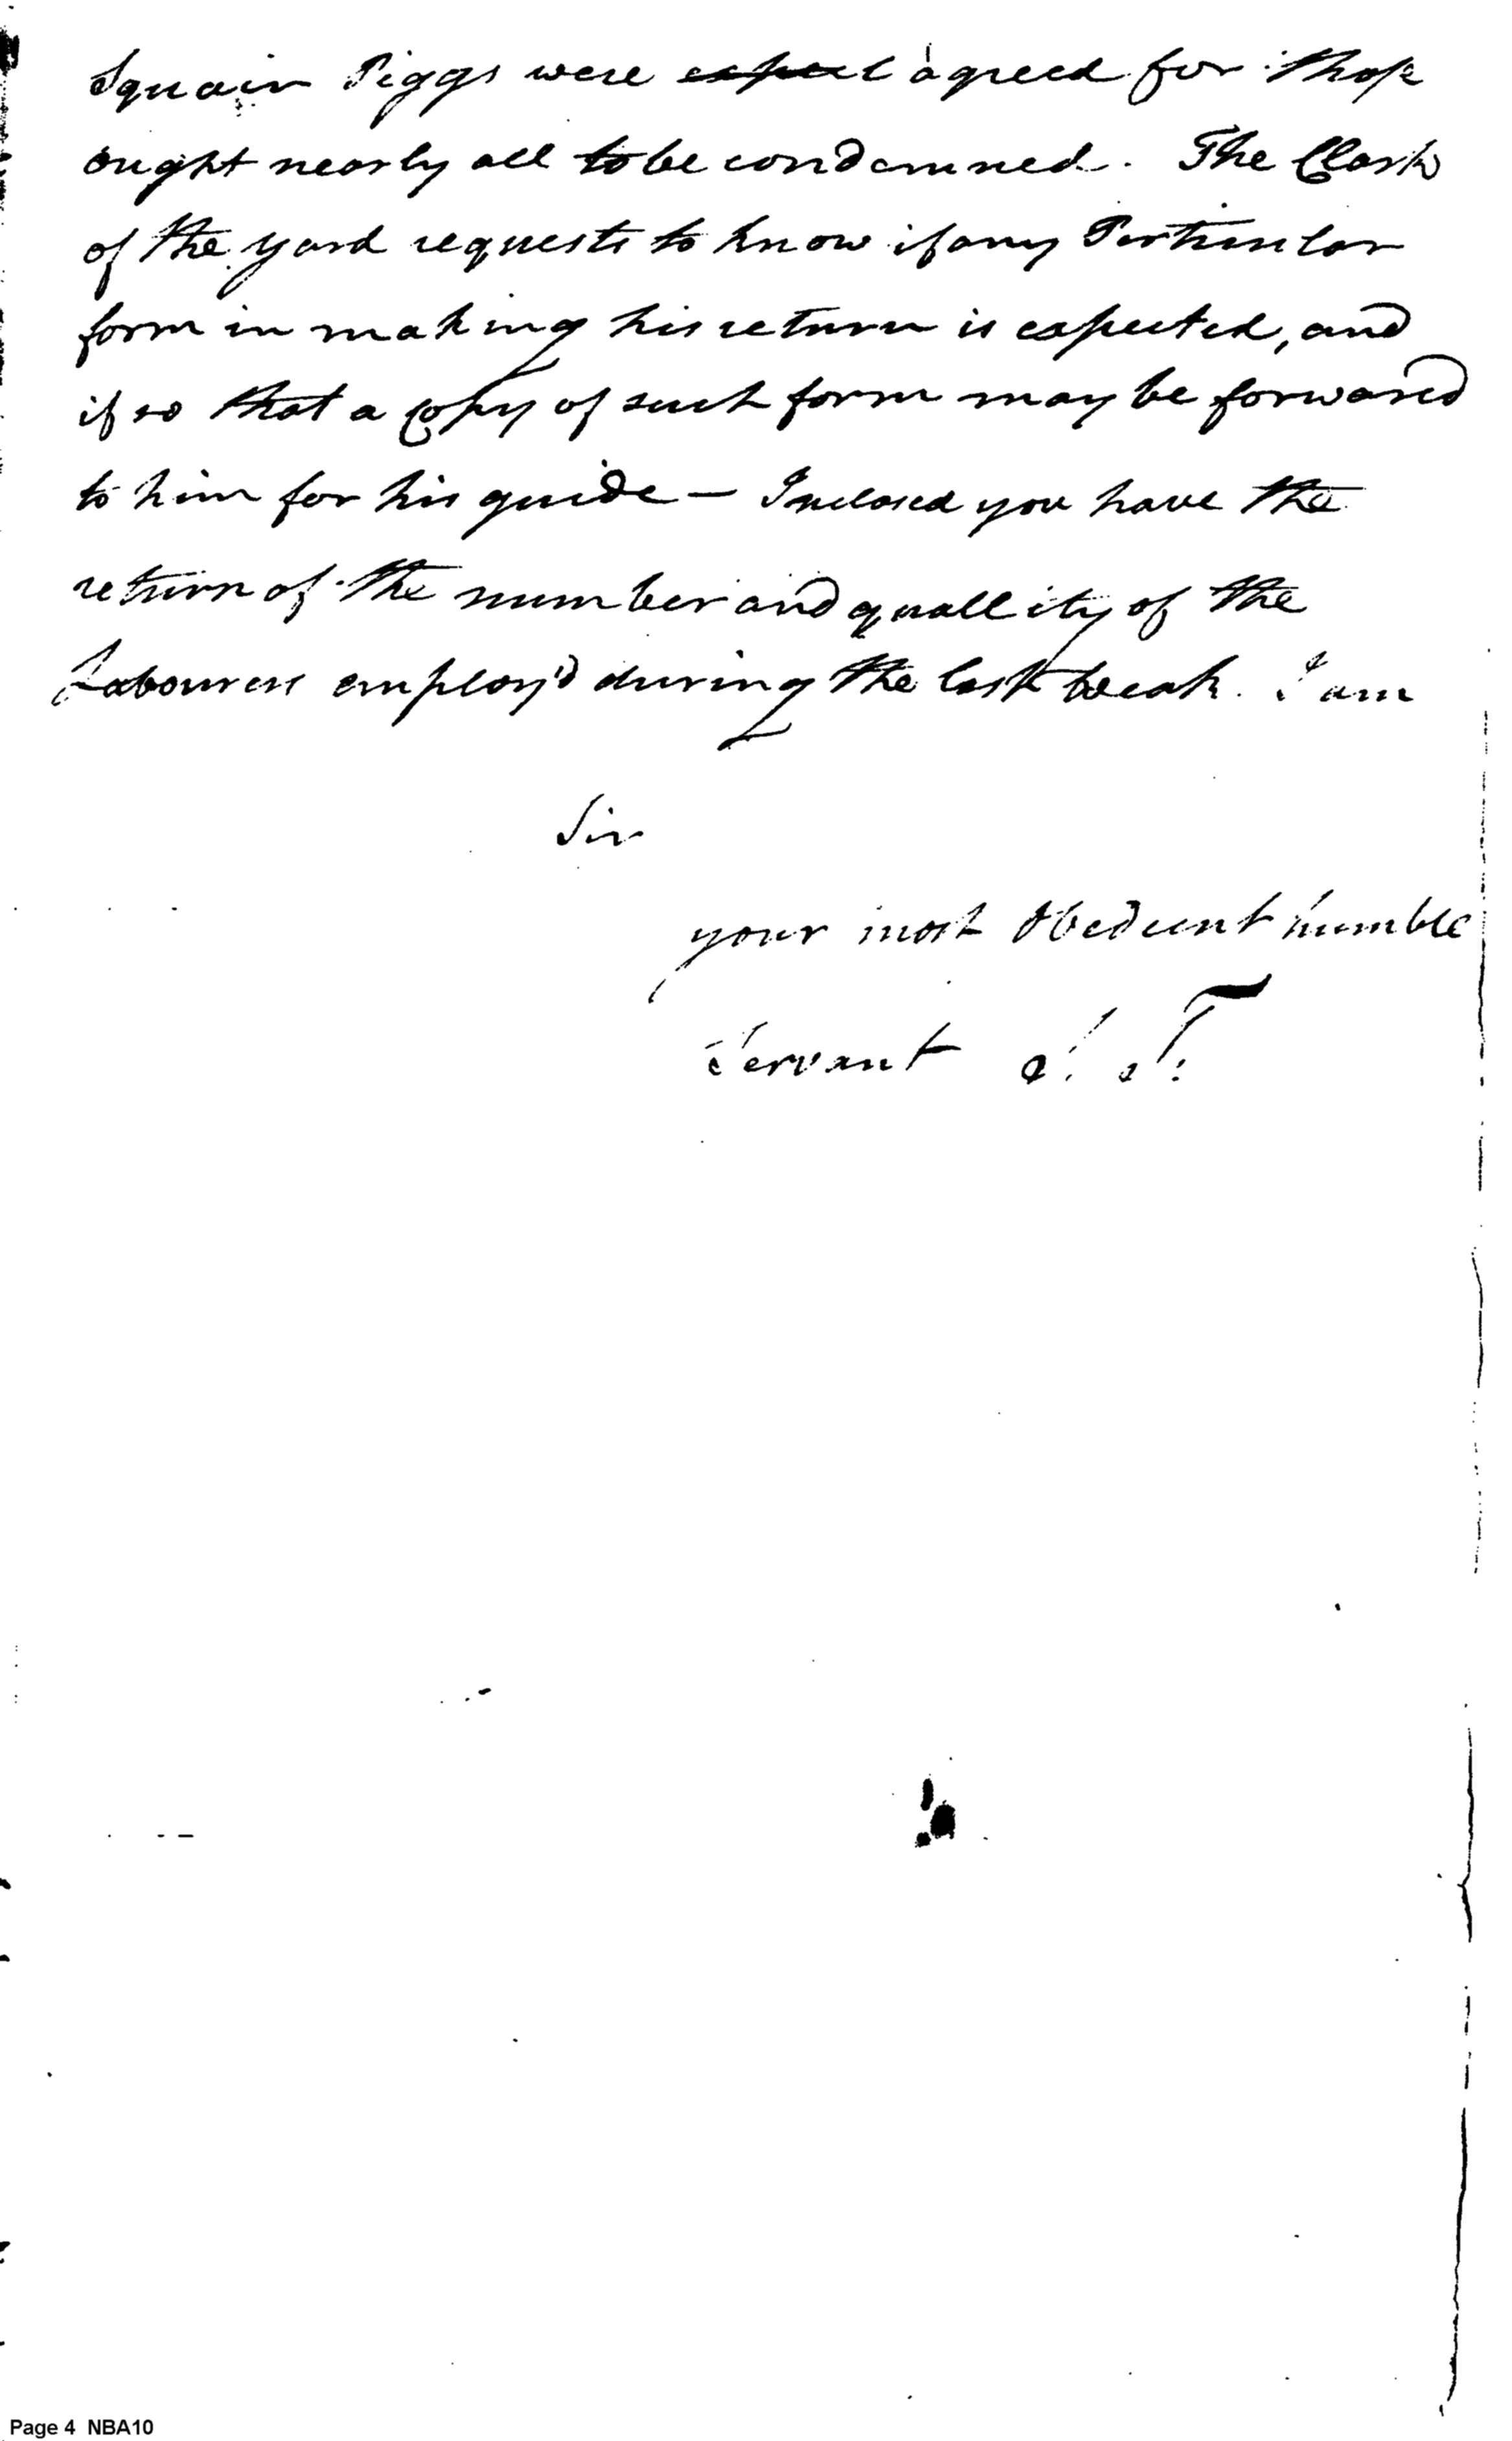 Squair Piggs were expect agreed for those
ought nearly all to be condemned. The Clark
of the yard requests to know if any Particular
form in making his return is expected, and
if so that a Copy of such form may be forward
to him for his guide — Inclosed you have the
return of the number and quallity of the
Labourers employ'd during the last weak. I am
Sir
your most Obedient humble
Servant J. F.
Page 4 NBA10